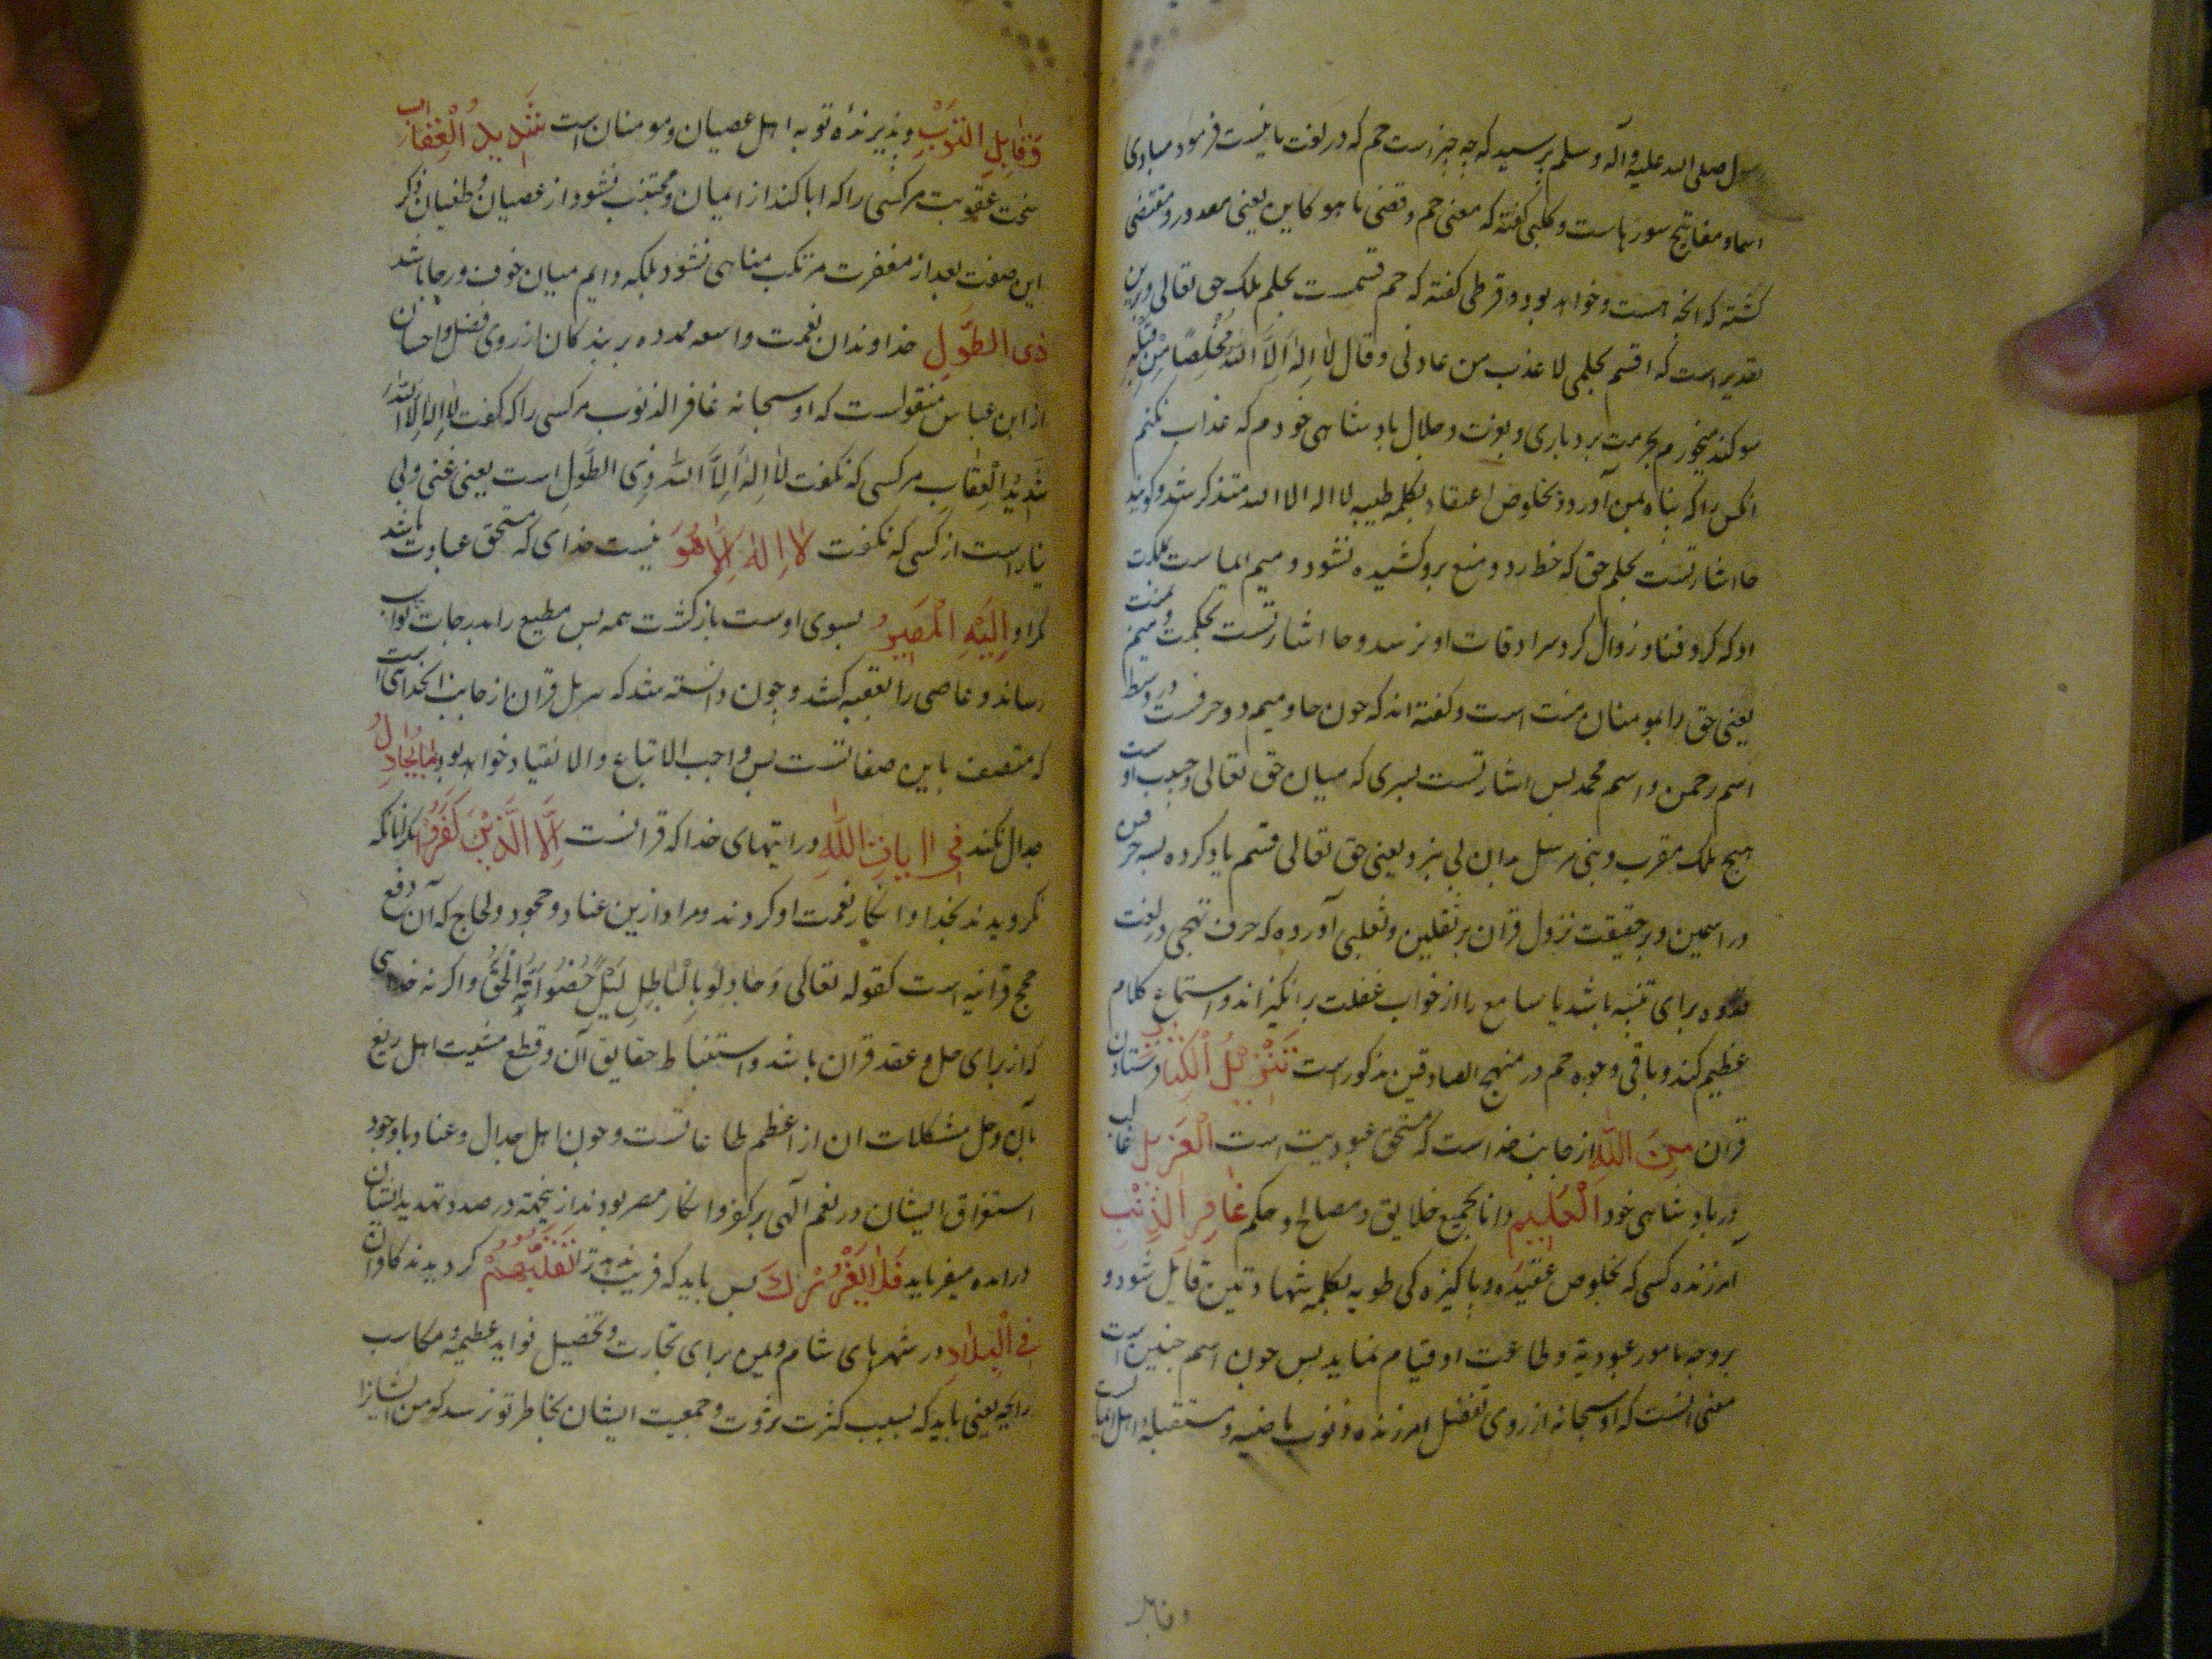 رسول صلی الله علیه وآله وسلم پرسید که چه چیزست حم که در لغت ما نیست فرمود مبادی
اسما و مفاتیح سورهاست و کلبی گفته که معنی حم و قضی ما هو کاین یعنی مقدور و مقتضی
گشته که انچه هست و خواهد بود و قرطی گفته که حم قسمست بحلم ملک حق تعالی و برین
تقدیر است که اقسم بحلمی لا عذب من عادنی و قال لا اله الا الله مخلصا من قلبه
سوکند میخورم بحرمت بردباری و بعزت و جلال بادشاهی خودم که عذاب نکنم
انکس را که پناه بمن آورد و بخلوص اعتقاد بکلمه طیبه لا اله الا الله متذکر شد و گویند
حا اشارتست بحلم حق که خط رد و منع برو کشیده نشود و میم ایماست بملکت
او که کرد فنا و زوال کرد سرادقات او نرسد و حا اشارتست بحکمت و میم منت
یعنی حق را بمومنان منت است و گفته اند که چون حا و میم دو حرفست در وسط
اسم رحمن و اسم محمد پس اشارتست بسری که میان حق تعالی و حبیب اوست
هیچ ملک مقرب و نبی مرسل بدان پی نبرد یعنی حق تعالی قسم یاد کرده بسر حرفین
در اسمین و بر حقیقت نزول قران بر ثقلین و ثعلبی آورده که حرف تهجی در لغت
برای تنبیه باشد یا سامع را از خواب غفلت برانگیزاند و استماع کلام
عظیم کند و باقی وجوه حم در منهج الصادقین مذکور است تَنْزِیلُ الْکِتَابِ فرستادن
قران مِنَ اللهِ از جانب خداست که مستحق عبودیت است الْعَزِیزِ غالب
در بادشاهی خود الْعَلِیمِ دانا بجمیع خلایق و مصالح و حکم غَافِرِ الذَّنْبِ
آمرزنده کسی که بخلوص عقیده و پاکیزه کی طویه بکلمه شهادتین قایل شود و
بروجه مامور عبودیة و طاعت او قیام نماید پس چون اسم چنین است
معنی انست که او سبحانه از روی تفضل امرزنده ذنوب ماضیه و مستقبله اهل ایمانست
و قابل
وَقَابِلِ التَّوْبِ و پذیرندهٔ توبه اهل عصیان و مومنان است شَدِیدِ الْعِقَابِ
سخت عقوبت مر کسی را که ابا کند از ایمان و مجتنب نشود از عصیان و طغیان ذکر
این صفت بعد از مغفرت مرتکب مناهی نشود بلکه دایم میان خوف و رجا باشد
ذِی الطَّوْلِ خداوندان نعمت واسعه ممدوه بر بندکان از روی فضل و احسان
از ابن عباس منقولست که او سبحانه غافر الذنوب مر کسی را که گفت لا اله الا الله
شَدِیدُ الْعِقَابِ مر کسی که نگفت لَا اِلٰهَ اِلَّا اللهُ ذِی الطَّوْلِ است یعنی غنی و بی
نیاز است از کسی که نگفت لَا اِلٰهَ اِلَّا هُوَ نیست خدای که مستحق عبادت باشد
مگر او اِلَیْهِ الْمَصِیرُ بسوی اوست بازگشت همه پس مطیع را بدرجات ثواب
رساند و عاصی را بعقبه کشد و چون دانسته شد که نزول قران از جانب خدای است
که متصف باین صفاتست پس واجب الاتباع و الانقیاد خواهد بود مَا یُجَادِلُ
جدال نکند فِی اٰیَاتِ اللهِ در ایتهای خدا که قرانست اِلَّا الَّذِیْنَ کَفَرُوْا مگر انانکه
نکرویدند بخدا و انکار نعمت او کردند و مراد ازین عناد و جحود و لجاج که آن دفع
حجج قرانیه است کقوله تعالی وَجَادَلُوا بِالْبَاطِلِ لِیُدْحِضُوا بِهِ الْحَقَّ و اکر نه
که از برای حل و عقد قران باشد و استنباط حقایق آن و قطع مشیت اهل زیغ
بآن و حل مشکلات ان از اعظم طاعاتست و چون اهل جدال و عناد با وجود
استغراق ایشان در نعم الهی بر کفر و انکار مصر بودند از نجهة در صدد تهدید ایشان
درامده میفرماید فَلَا یَغْرُرْكَ پس باید که فریب ندهد ترا تَقَلُّبُهُمْ کردیدن کافران
فِی الْبِلَادِ در شهرهای شام و یمن برای تجارت و تحصیل فواید عظیمه و مکاسب
رابحه یعنی باید که بسبب کثرت ثروت و جمعیت ایشان بخاطر تو نرسد که من ایشانرا